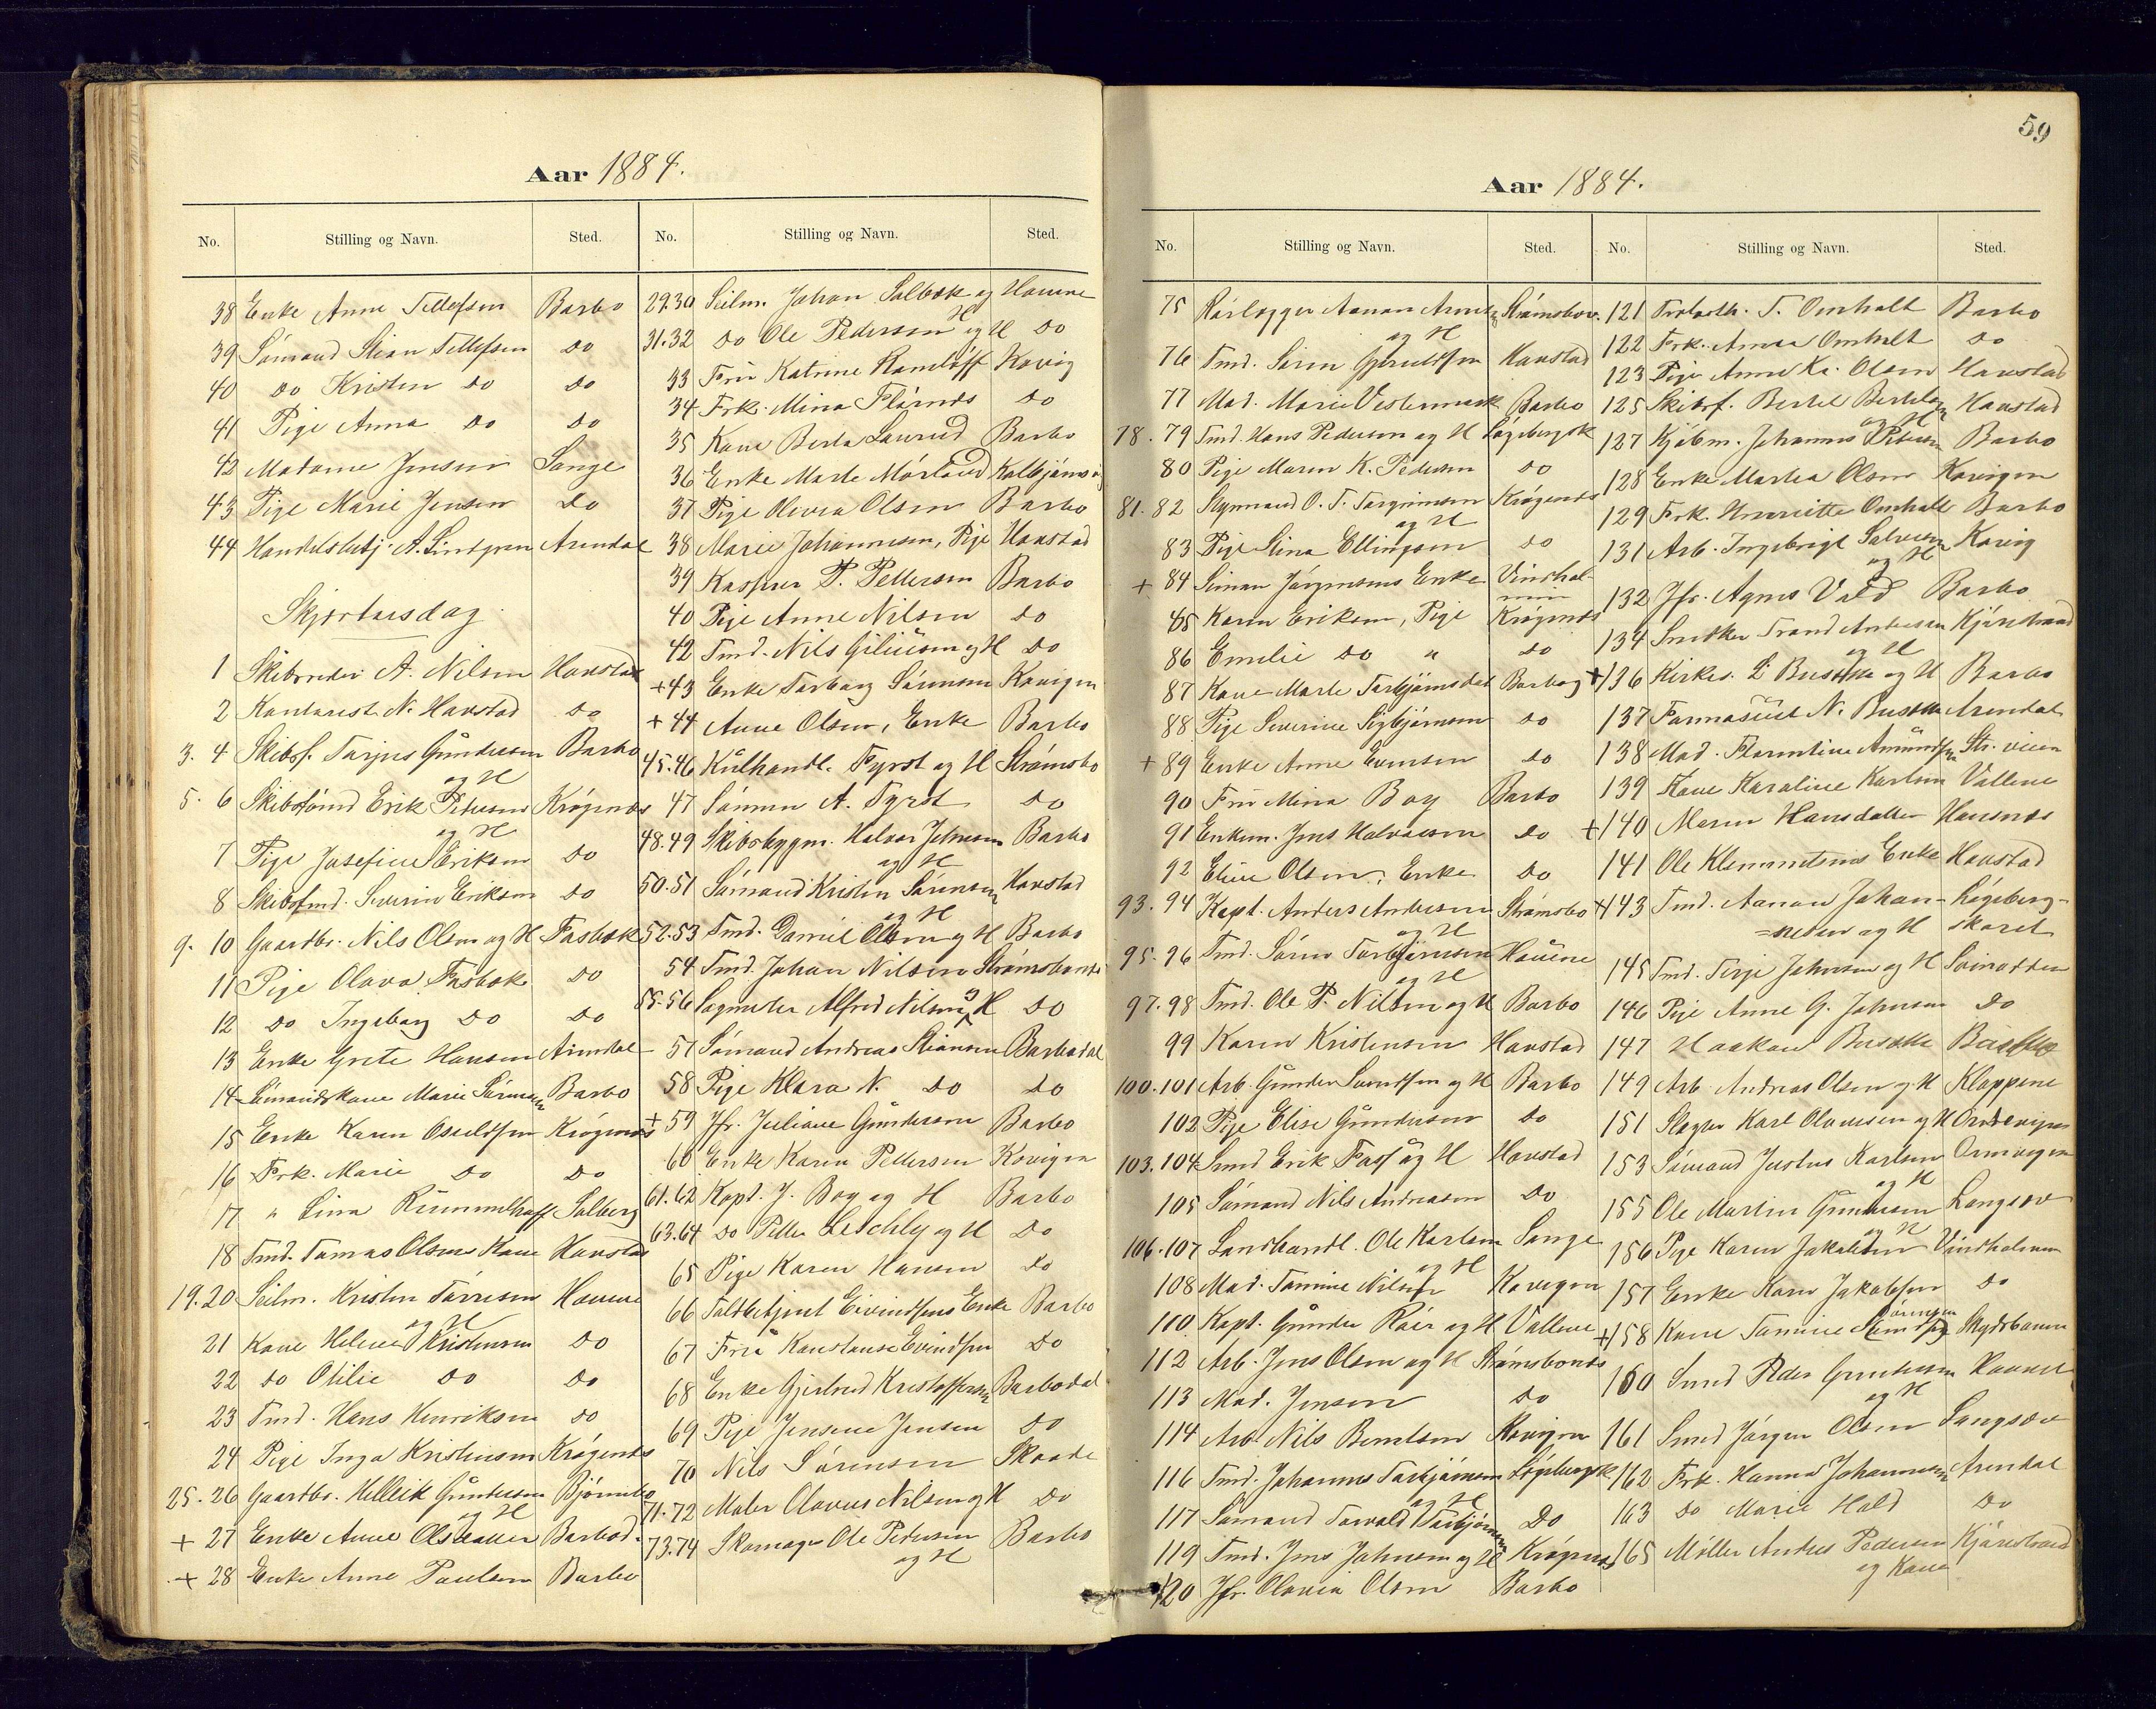 Aar 1884.
No. Stilling og Navn. Sted.
38 Enke Anne Tellefsen Barbo
39 Sómand Stian Tellefsen do
40 do Kristen do do
41 Pige Anna do do
42 Madame Jensen Songe
43 Pige Marie Jensen do
44 Handelsbetj. A. Lindgren Arendal
Skjærtorsdag
1 Skibsreder A. Nilsen Havstad
2 Kontorist N. Havstad do
3. 4 Skibsf. Terjus Gundersen Barbo
og H
5. 6 Skibstómd Erik Petersen Krógenæs
og H
7 Pige Josefine Eriksen do
8 Skibstmd. Severin Eriksen do
9. 10 Gaardbr. Nils Olsen og H Fasbæk
11 Pige Olava Fasbæk do
12 do Ingeborg do do
13 Enke Grete Hansen Arendal
14 Sómandskone Marie Sórensen Barbo
15 Enke Karen Osuldsen Krógenæs
16 Frk. Marie do do
17 " Lina Rummelhoff Solberg
18 Tmd. Tomas Olsens Kone Havstad
19. 20 Seilm. Kristen Tórresen Havene
og H
21 Kone Helene Kristensen do
22 do Otilie do do
23 Tmd. Hans Henriksen do
24 Pige Inga Kristensen Krógenæs
25. 26 Gaardbr. Hellik Gundersen Bjórnebo
og H
+ 27 Enke Anne Olsdatter Barbod.
+ 28 Enke Anne Paulsen Barbo
No. Stilling og Navn. Sted.
29.30 Seilm. Johan Solbæk og H Havene
31.32 do Ole Pedersen og H do
33 Fru Katrine Ramlóff Kovig
34 Frk. Mina Flórnæs do
35 Kone Berta Laurud Barbo
36 Enke Marte Mórland Kolbjórnsv
37 Pige Olivia Olsen Barbo
38 Marie Johannesen, Pige Havstad
39 Kasper P. Pettersen Barbo
40 Pige Anne Nilsen do
42 Tmd. Nils Giliusen og H do
+43 Enke Torborg Sórensen Kovigen
+44 Anne Olsen, Enke Barbo
45.46 Kulhandl. Fyrst og H Strómsbo
47 Sómen A. Fyrst do
48.49 Skibsbygm. Halvor Johnsen Barbo
og H
50.51 Sómand Kristen Sórensen Havstad
og H
52.53 Tmd. Daniel Olsen og H Barbo
54 Tmd. Johan Nilsen Strómsbonæs
55.56 Sagmester Alfred Nilsen og H do
57 Sómand Andreas Stiansen Barbodal
58 Pige Klara N. do do
+59 Jfr. Juliane Gundersen Barbo
60 Enke Karen Pettersen Kovigen
61.62 Kapt. J. Boy og H Barbo
63.64 do Petter Leschly og H do
65 Pige Karen Hansen do
66 Toldbetjent Eivindsens Enke Barbo
67 Fru Konstanse Eivindsen do
68 Enke Gjertrud Kristoffersen Barbodal
69 Pige Jensine Jensen do
70 Nils Sórensen Skaade
71.72 Maler Olavus Nilsen og H do
73.74 Skomager Ole Pedersen Barbo
og H
59
Aar 1884.
No. Stilling og Navn. Sted.
75 Aanon Strómsbon.
og H
76 Tmd. Sóren Gjeruldsen Havstad
77 Mad. Marie Vestermark Barbo
78. 79 Tmd. Hans Pedersen og H Lógebergsk
80 Pige Maren K. Pedersen do
81. 82 Styrmand O. T. Torgrimsen Krógenæs
og H
83 Pige Stina Ellingsen do
+ 84 Simon Jórgensens Enke Vindhol-
men
85 Karen Eriksen, Pige Krógenæs
86 Emelie do " do
87 Kone Marte Torbjórnsdat Barbo
88 Pige Severine Sigbjórnsen do
+ 89 Enke Anne Evensen do
90 Fru Mina Boy Barbo
91 Enkem. Jens Halvorsen do
92 Eline Olsen, Enke do
93. 94 Kapt. Anders Andersen Strómsbo
og H
95. 96 Tmd. Sóren Torbjórnsen Havene
og H
97. 98 Tmd. Ole P. Nilsen og H Barbo
99 Karen Kristensen Havstad
100. 101 Arb. Gunder Svendsen og H Barbo
102 Pige Elise Gundersen do
103. 104 Smd Erik Foss og H Havstad
105 Sómand Nils Andreasen do
106. 107 Landhandl. Ole Karlsen Songe
og H
108 Mad. Tomine Nilsen Kovigen
110 Kapt. Gunder Róer og H Vollene
112 Arb. Jens Olsen og H Strómsbonæs
113 Mad. Jensen do
114 Arb. Nils Berntsen Kovigen
116 Tmd. Johannes Torbjórnsen Lógebergsk
og H
117 Sómand Torvald Torbjórnsen do
119 Tmd. Jens Johnsen og H Krógenæs
120 Jfr. Olovia Olsen Barbo
No. Stilling og Navn. Sted.
121 T. Omholt Barbo
122 Frk. Anna Omholt do
123 Pige Anne Ki. Olsen Havstad
125 Skibsf. Bertel Bertelsen Havstad
og H
127 Kjóbm. Johannes Petersen Barbo
128 Enke Martea Olsen Kovigen
129 Frk. Henriette Omholt Barbo
131 Arb. Ingebrigt Salvesen Kovig
og H
132 Jfr. Agnes Vold Barbo
134 Snedker Trond Andersen Kjórestrand
og H
+136 Kirkes. L. Busække og H Barbo
137 Farmaseut N. Busække Arendal
138 Mad. Florentine Amundsen Str.veien
139 Kone Karoline Karlsen Vollene
+140 Maren Hansdatter Havsnæs
141 Ole Klemmetsens Enke Havstad
+143 Tmd. Aanon Johan- Lógeberg-
=nesen og H skaret
145 Tmd. Terje Johnsen og H Svinodden
146 Pige Anne G. Johnsen do
147 Haakon Busække Barbo
149 Arb. Andreas Olsen og H Kloppene
151 Slagter Karl Olavesen og H
153 Sómand Justus Karlsen Ormvigen
og H
155 Ole Martin Gundersen Langsæv
og H
156 Pige Karen Jakobsen Vindholmen
157 Enke Karen Jakobsen do
+158 Kone Tomine Sórensen Skydsbanen
160 Smd Peder Gundersen
og H
161 Smd Jórgen Olsen Langsæv
162 Frk. Hanna Johannesen Arendal
163 do Marie Hald do
165 Móller Andres Pedersen Kjórestrand
og Kone